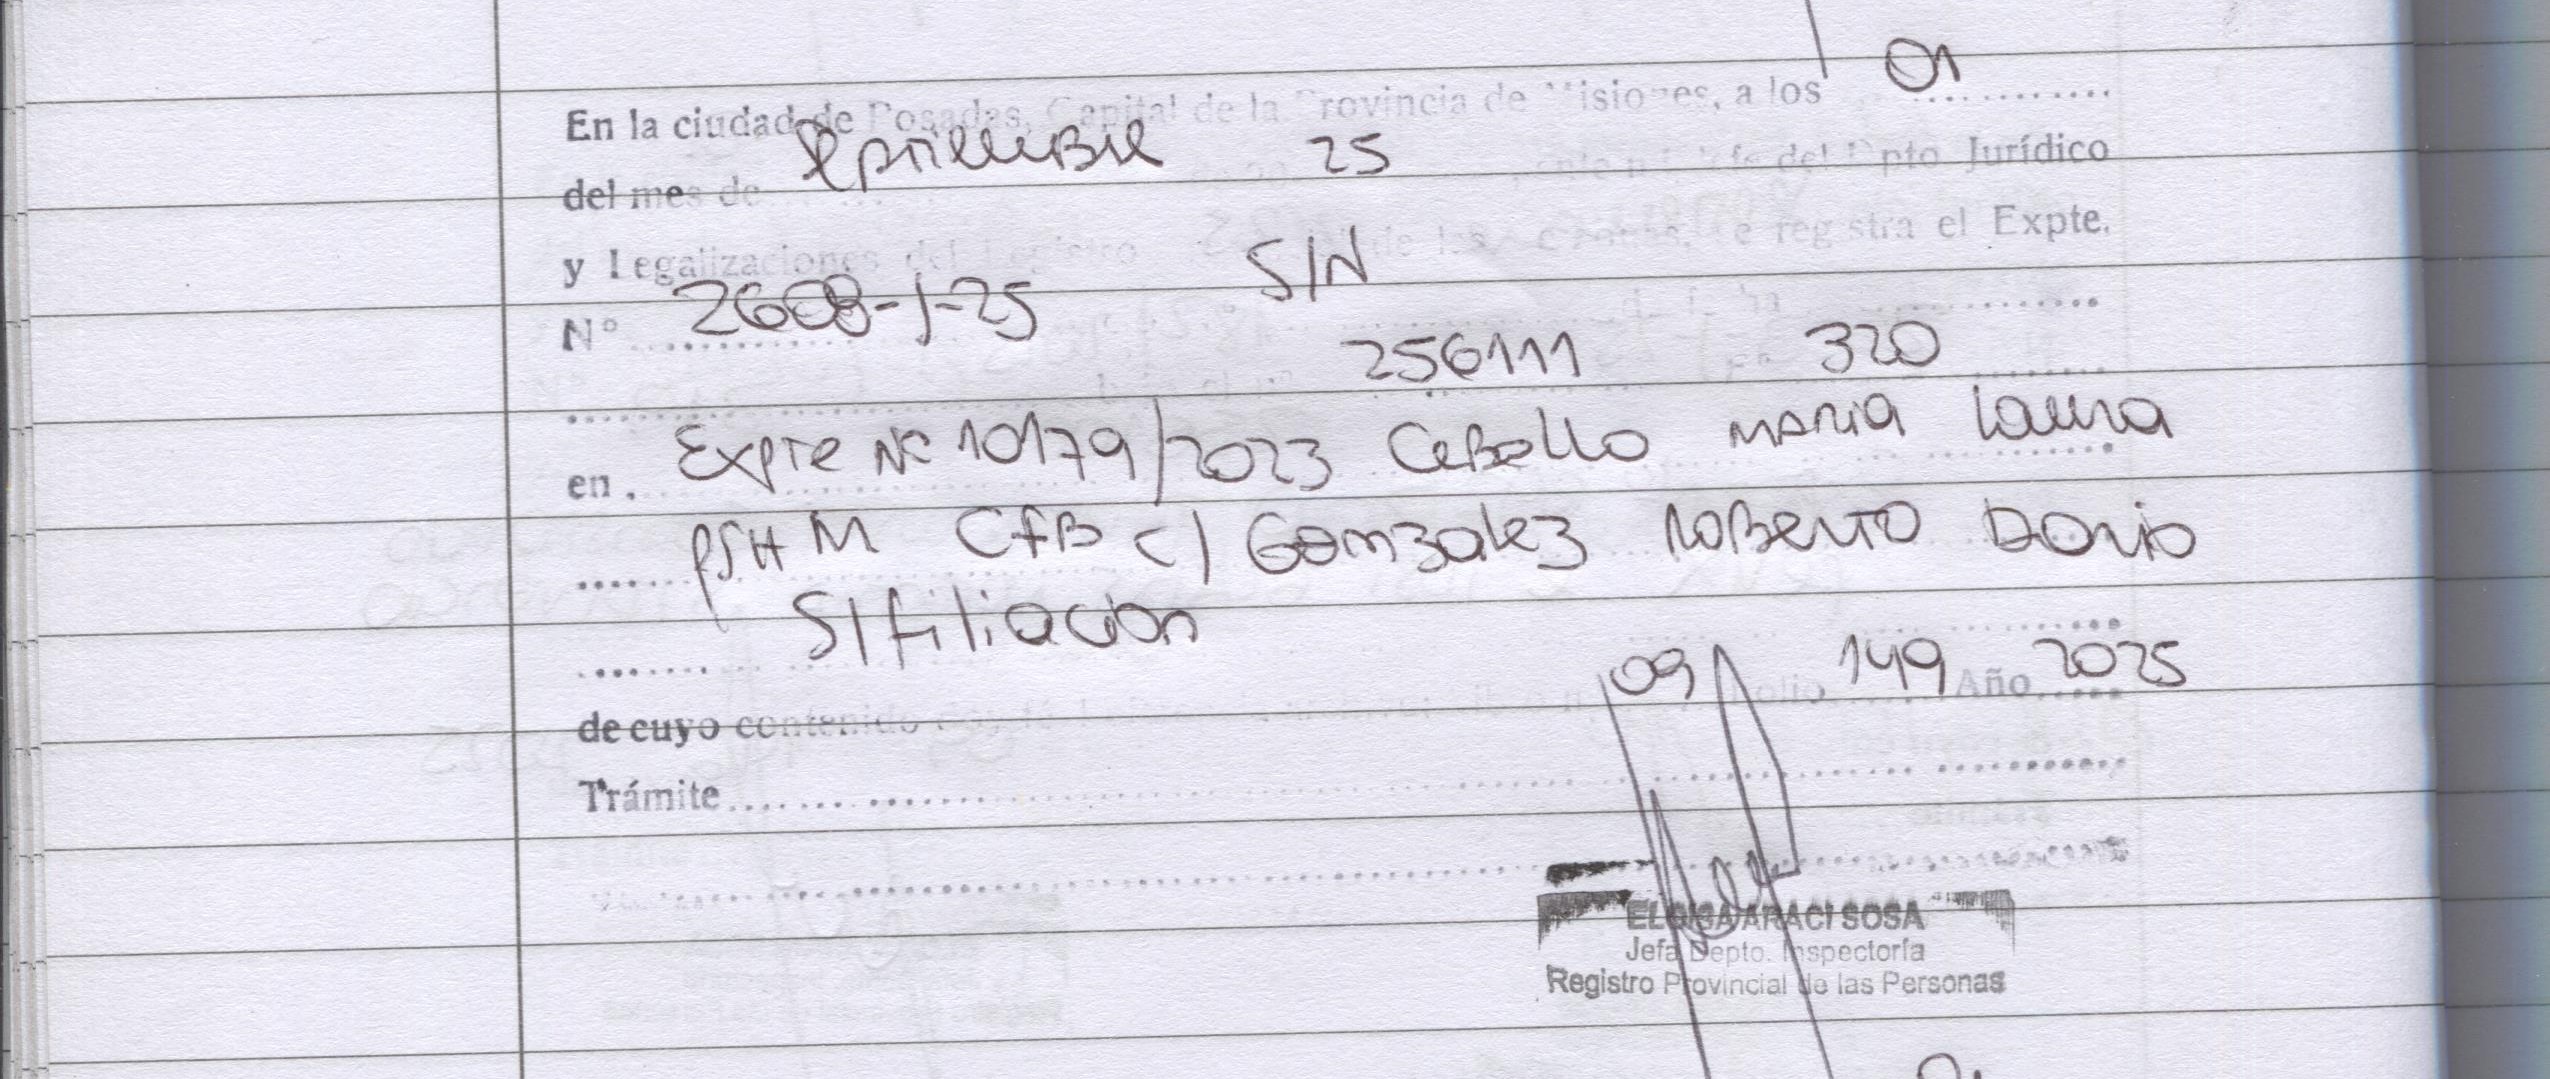 En la ciudad de Posadas, Capital de la Provincia de Misiones, a los 01
del mes de Septiembre 25 Jefe del Dpto Jurídico
y Legalizaciones del Registro de las se registra el Expte.
N° 2608-J-25 S/N
256111 320
en. Expte Nº 10179/2023 Ceballo Maria Laura
PSHM CFB c/ Gonzalez Roberto Dario
S/filiacion
de cuyo contenido 09 Folio 149 Año 2025
Trámite
ELOISA ARACI SOSA
Jefa Depto. Inspectoría
Registro Provincial de las Personas